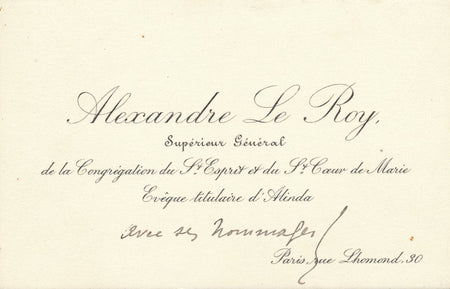 Alexandre Le Roy,
Supérieur Général
de la Congrégation du St Esprit et du St Cœur de Marie
Evêque titulaire d'Alinda
avec ses hommages
Paris, rue Lhomond. 30